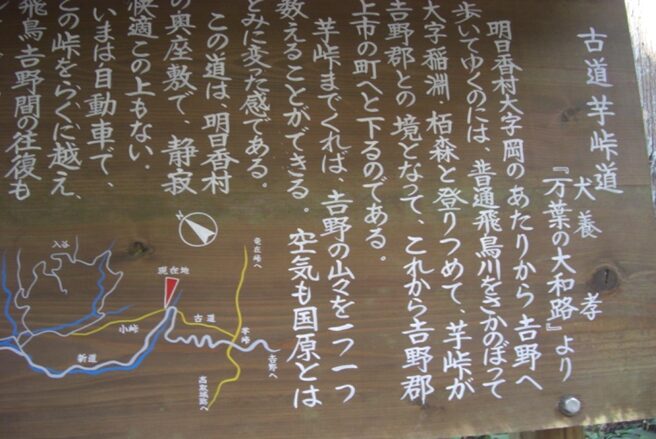 古道芋峠道
犬養 孝
『万葉の大和路』より
明日香村大字岡のあたりから吉野へ
歩いてゆくのには、普通飛鳥川をさかのぼって
大字稲淵・栢森と登りつめて、芋峠が
吉野郡との境となって、これから吉野郡
上市の町へと下るのである。
芋峠までくれば、吉野の山々を一つ一つ
数えることができる。空気も国原とは
とみに変った感である。
この道は、明日香村
の奥座敷で、静寂
快適この上もない。
いまは自動車で、
この峠をらくに越え、
飛鳥吉野間の往復も
入谷
現在地
竜在峠へ
小峠
古道
芋峠
新道
吉野へ
高取城跡へ